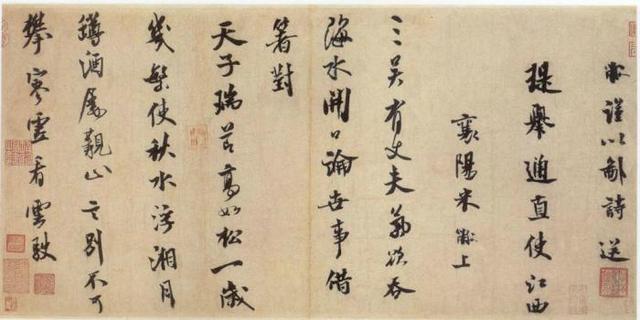 黻謹以鄙詩送
提舉通直使江西
襄陽米黻上
三吳有丈夫氣欲吞
海水開口論世事借
箸對
天子瑞節高如松一歲
幾繁使秋水浮湘月
罇酒屬親山言別不可
攀寒霄看雲駛